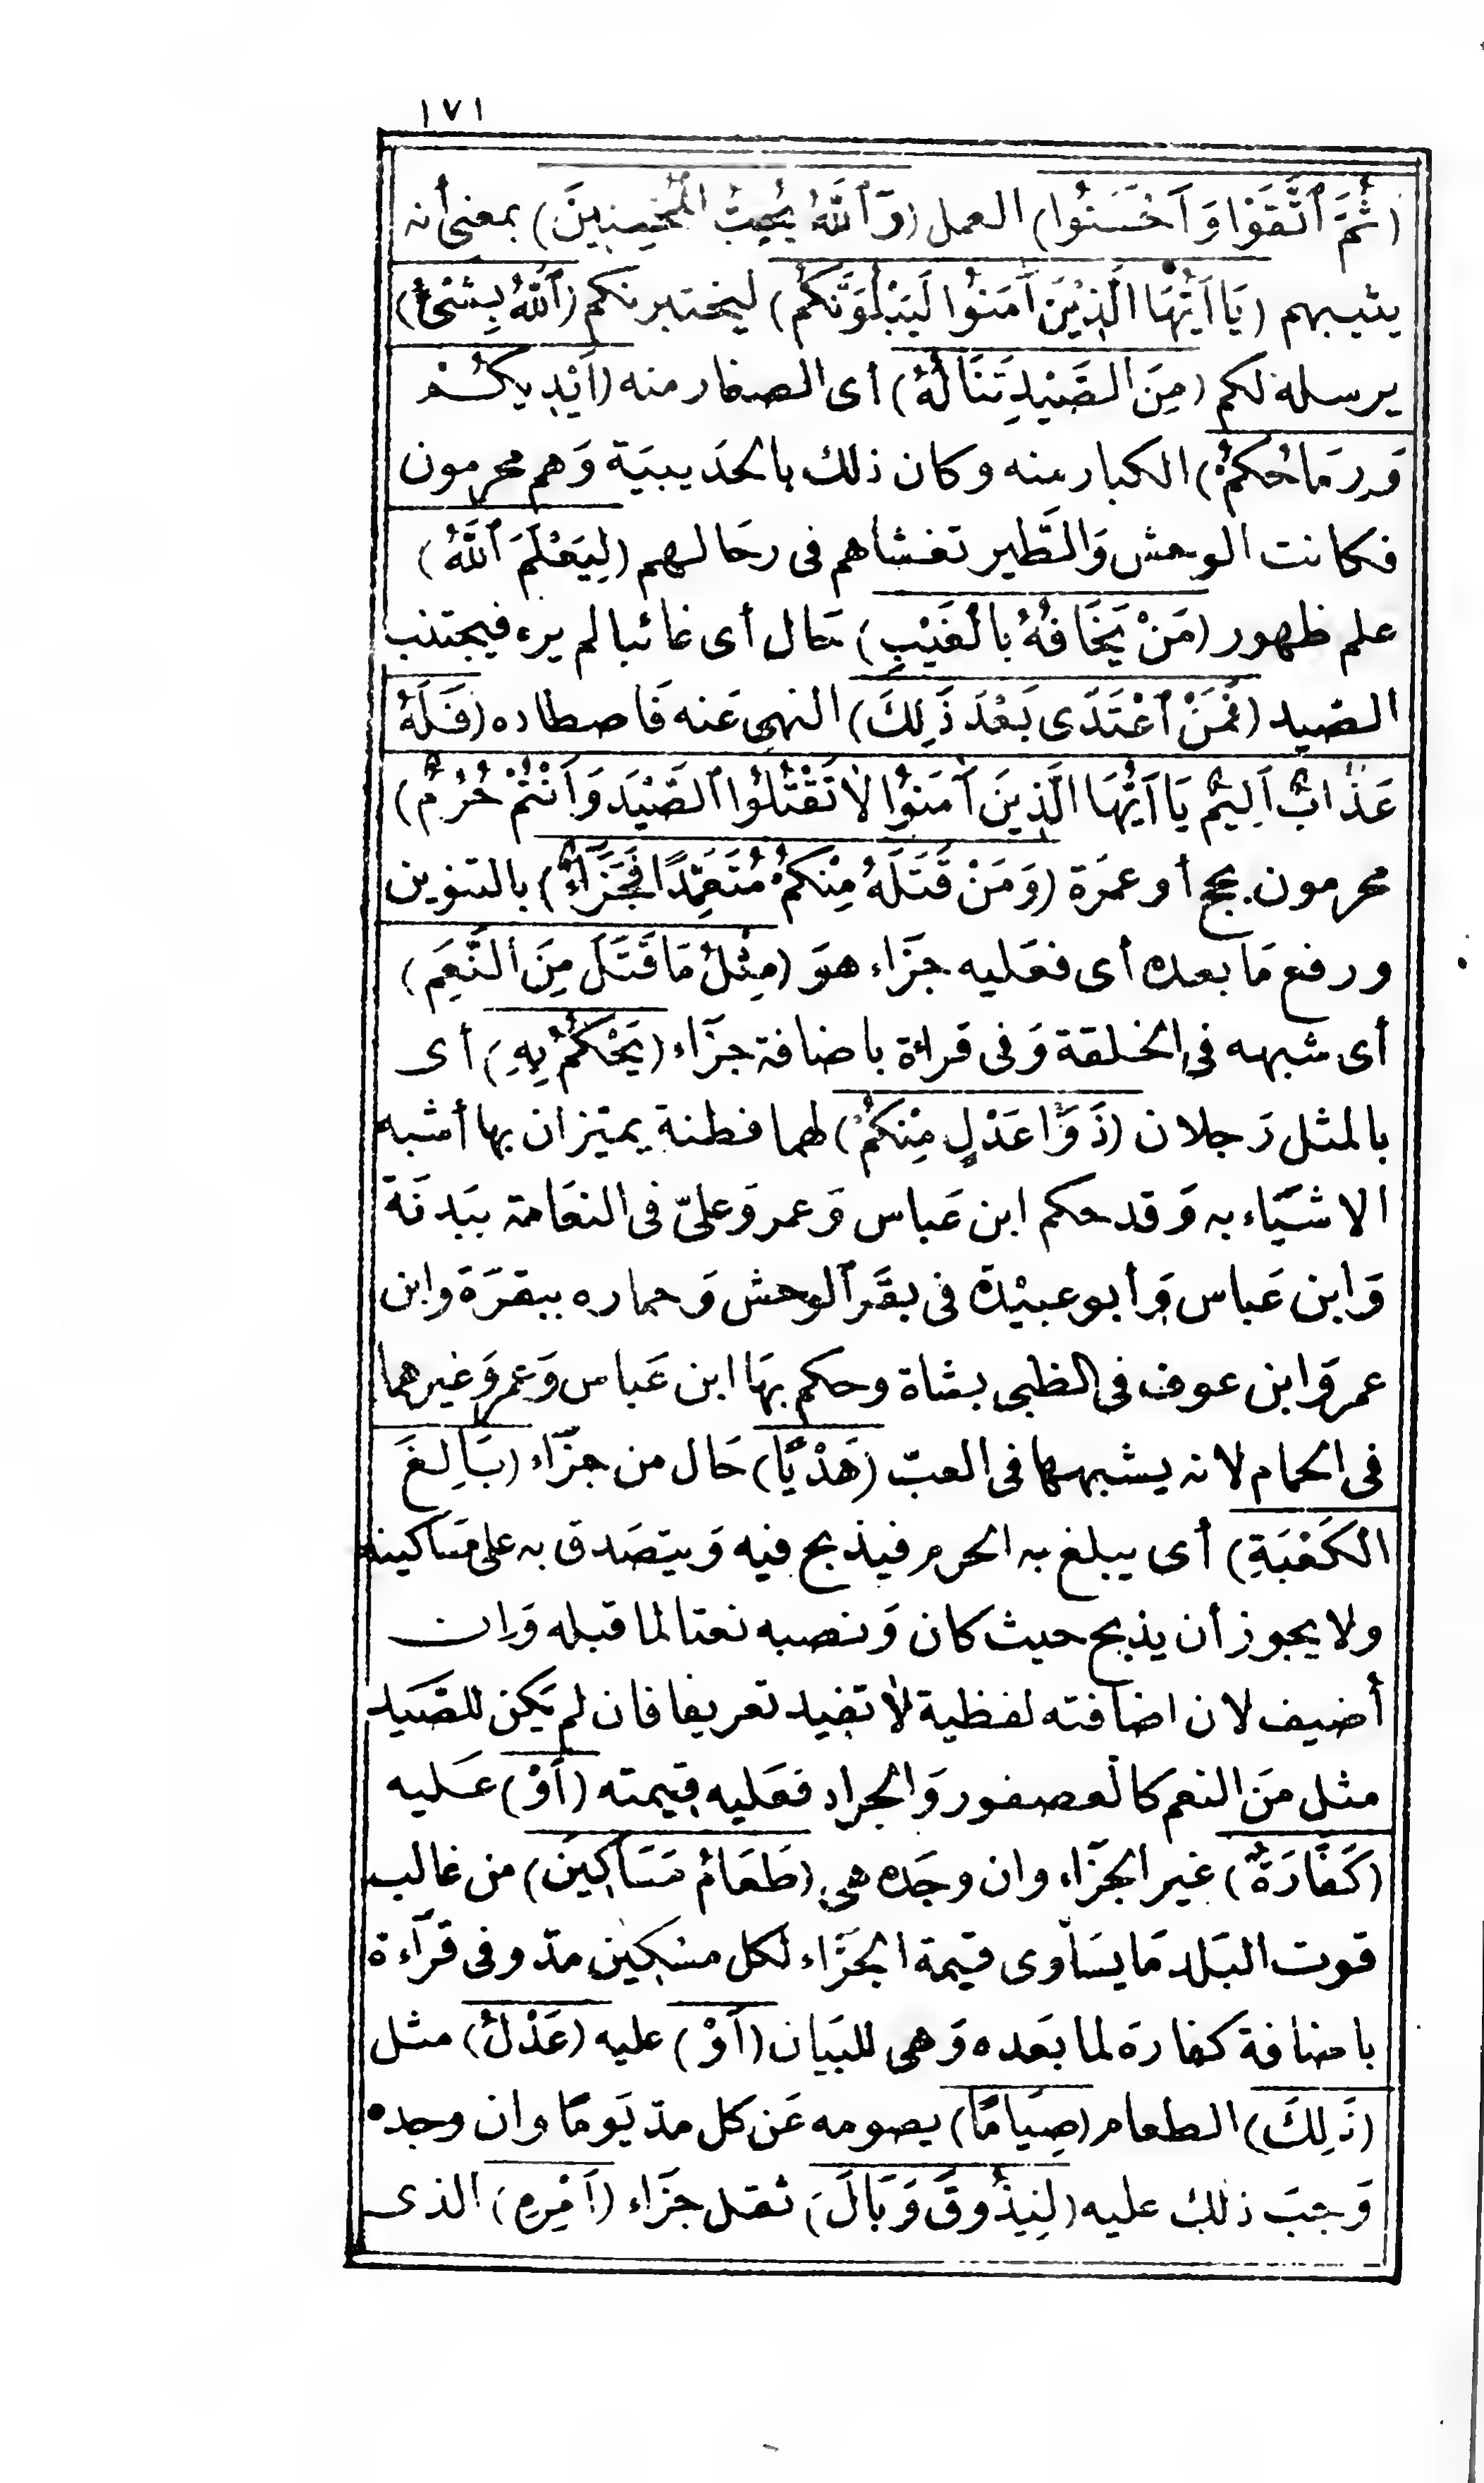 ١٧١
(ثُمَّ ٱتَّقَوْا وَأَحْسَنُوا) العمل (وَٱللَّهُ يُحِبُّ الْمُحْسِنِينَ) بمعنى أنه
يثيبهم (يَا أَيُّهَا الَّذِينَ آمَنُوا لَيَبْلُوَنَّكُمْ) ليختبرنكم (ٱللَّهُ بِشَىْءٍ)
يرسله لكم (مِنَ الصَّيْدِ تَنَالُهُ) أى الصغار منه (أَيْدِيكُمْ
وَرِمَاحُكُمْ) الكبار منه وكان ذلك بالحَديبيَة وَهم محرمون
فكانت الوحش وَالطَّير تغشاهم فى رحَالهم (لِيَعْلَمَ ٱللَّهُ)
علم ظهور (مَنْ يَخَافُهُ بِالْغَيْبِ) حَال أى غائبا لم يره فيجتنب
الصّيد (فَمَنْ ٱعْتَدَى بَعْدَ ذَلِكَ) النهى عَنه فَاصطاده (فَلَهُ
عَذَابٌ أَلِيمٌ يَا أَيُّهَا الَّذِينَ آمَنُوا لَا تَقْتُلُوا ٱلصَّيْدَ وَأَنْتُمْ حُرُمٌ)
محرمون بحج أو عمرَة (وَمَنْ قَتَلَهُ مِنْكُمْ مُتَعَمِّدًا فَجَزَآءٌ) بالتنوين
ورفع مَا بعده أى فعَليه جَزَاء هوَ (مِثْلُ مَا قَتَلَ مِنَ النَّعَمِ)
أى شبهه فى الخلقة وَفى قراءة باضافة جزَاء (يَحْكُمُ بِهِ) أى
بالمثل رَجلان (ذَوَا عَدْلٍ مِنْكُمْ) لهما فطنة يميّزان بها أشبه
الاشيَاء به وَقد حكم ابن عَباس وَعمر وَعلىّ فى النعَامة ببَدنَة
وَابن عَباس وَأبو عبيْدة فى بقَر ٱلوحش وَحماره ببقرَة وابن
عمر وَابن عوف فى الظبى بشاة وحكم بهَا ابن عَباس وَعمر وَغيرهما
فى الحمام لانه يشبهها فى العبّ (هَدْيًا) حَال من جزَآء (بَالِغَ
الكَعْبَةِ) أى يبلغ به الحرم فيذبح فيه وَيتصَدق به على مَساكينه
ولا يجوز أن يذبح حيث كان وَنصبه نعتا لما قبله وَان
أضيف لان اضافته لفظية لا تفيد تعريفا فان لم يَكن للصَيد
مثل مَن النعم كالعصفور وَالجراد فعَليه قيمته (أَوْ) عَليه
(كَفَّارَةٌ) غير الجزَاء وان وجَده هى (طَعَامُ مَسَاكِينَ) من غالب
قوت البَلد مَا يسَاوى قيمة الجَزَاء لكل مسكين مدّ وفى قرآءة
باضافة كفارَة لما بَعده وَهى للبيَان (أَوْ) عليه (عَدْلُ) مثل
(ذَلِكَ) الطعام (صِيَامًا) يصومه عَن كل مدّ يَومًا وان وجده
وَجبَ ذلك عليه (لِيَذُوقَ وَبَالَ) ثقل جزَاء (أَمْرِهِ) الذى